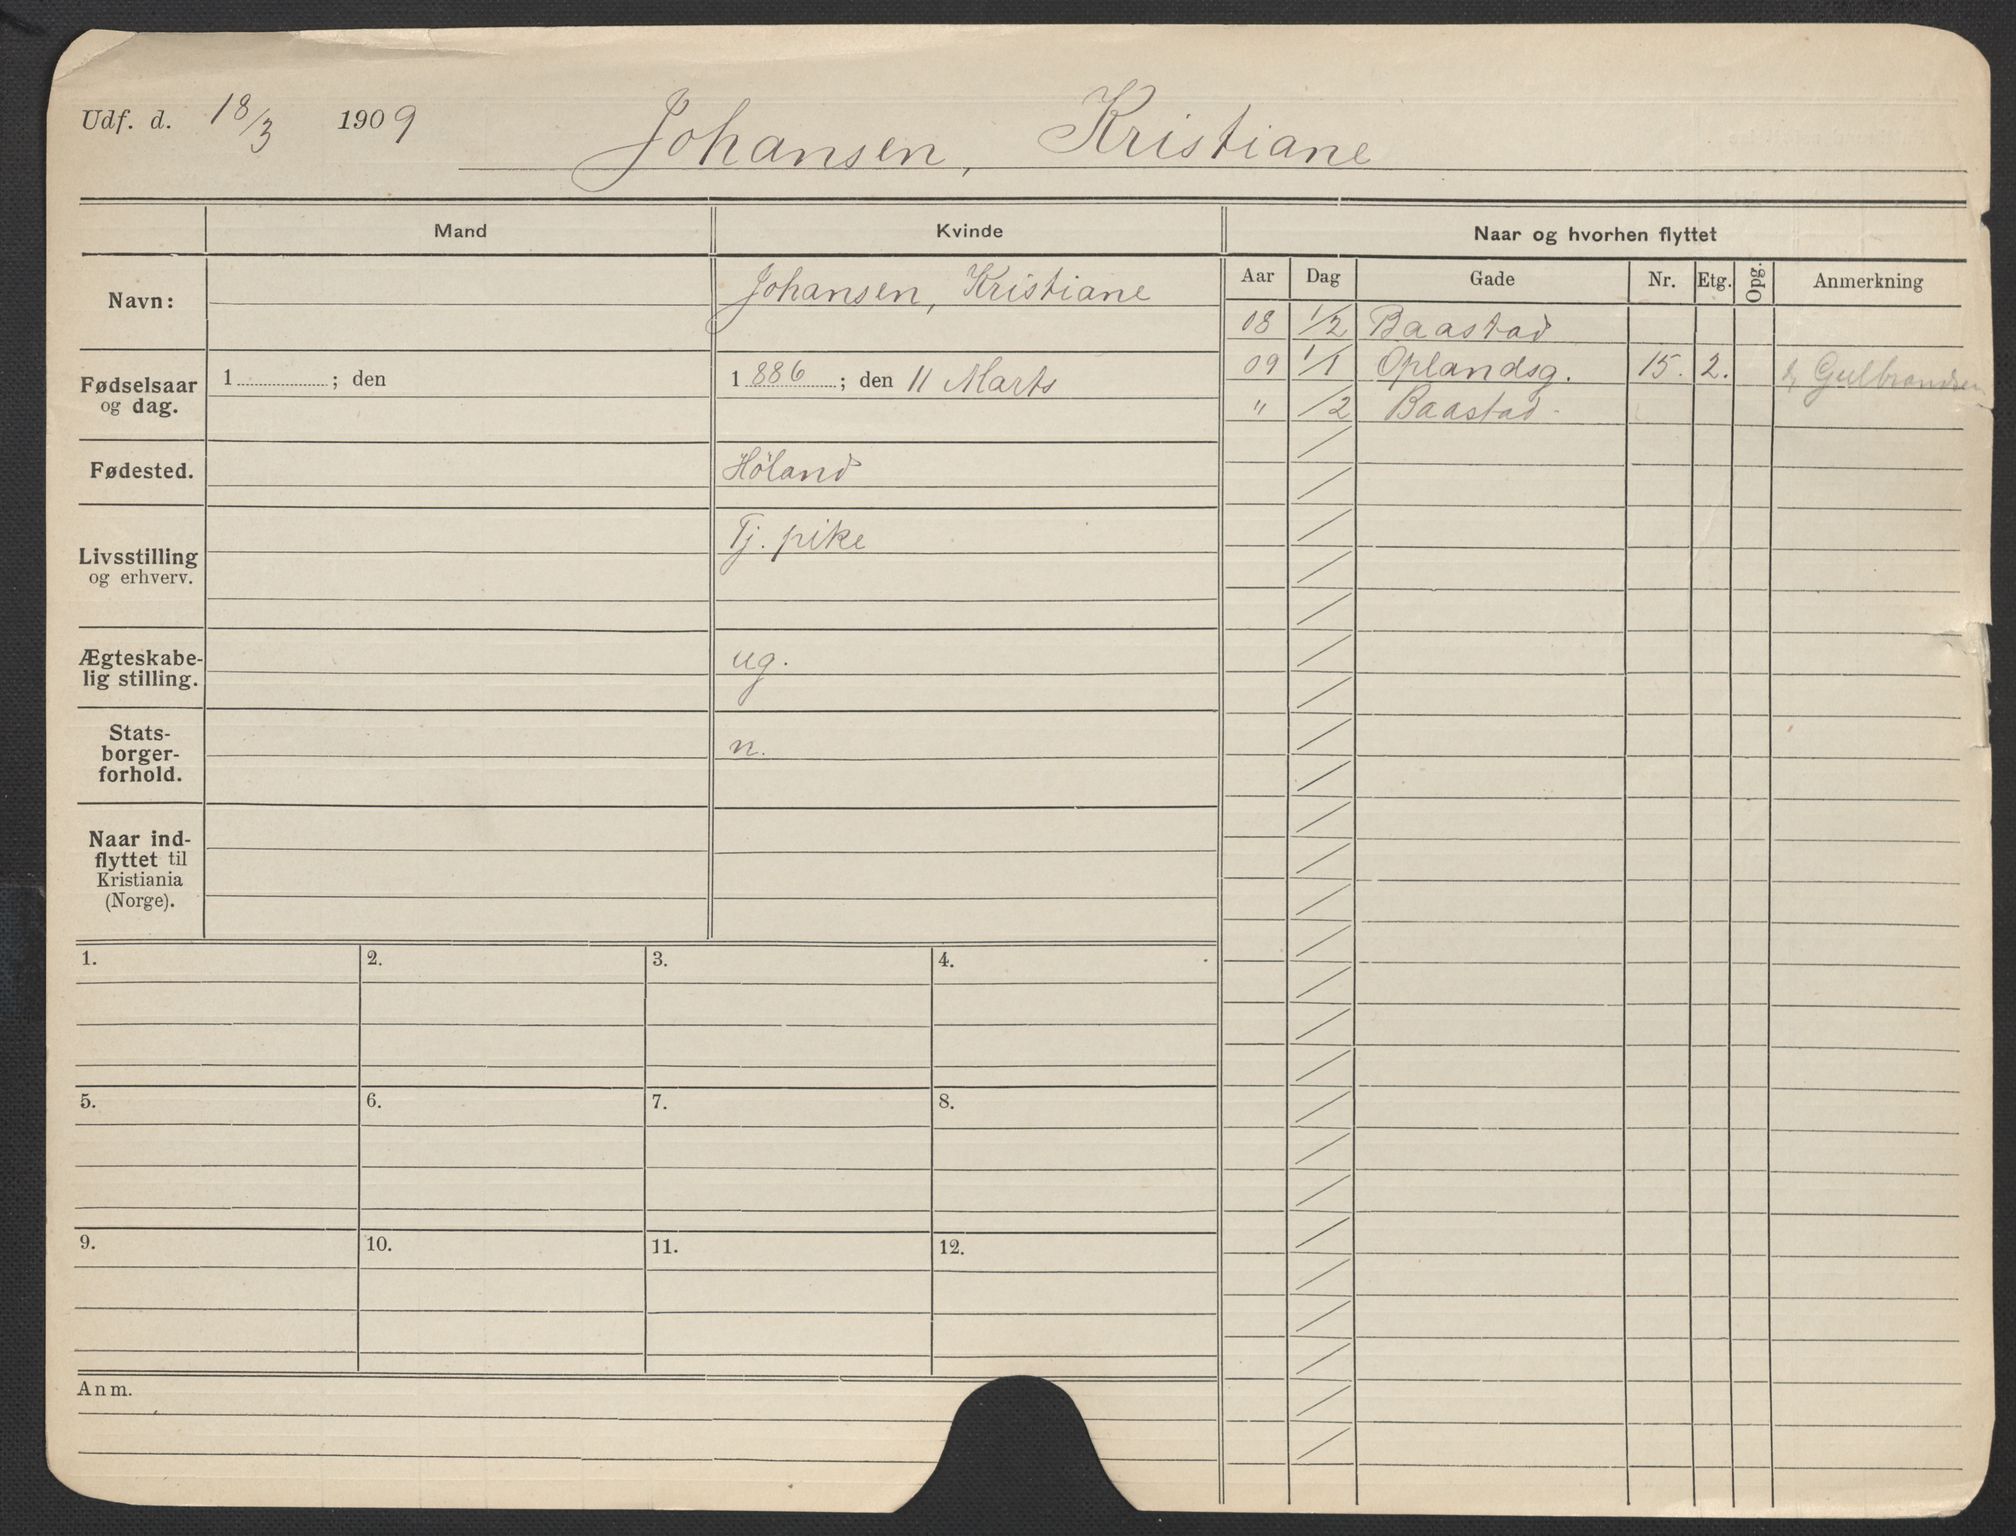 Udf. d. 18/3 1909 Johansen, Kristiane
Mand Kvinde Naar og hvorhen flyttet
Aar Dag Gade Nr. Etg. Opg. Anmerkning
Navn: Johansen, Kristiane
08 1/2 Baastad
09 1/1 Oplandsg. 15. 2. Gulbrandsen
" /2 Baastad
Fødselsaar
og dag.
1 ; den
1 886 ; den 11 Marts
Fødested. Höland
Livsstilling
og erhverv.
Tj. pike
Ægteskabe-
lig stilling.
ug.
Stats-
borger-
forhold.
n.
Naar ind-
flyttet til
Kristiania
(Norge).
1. 2. 3. 4.
5. 6. 7. 8.
9. 10. 11. 12.
Anm.